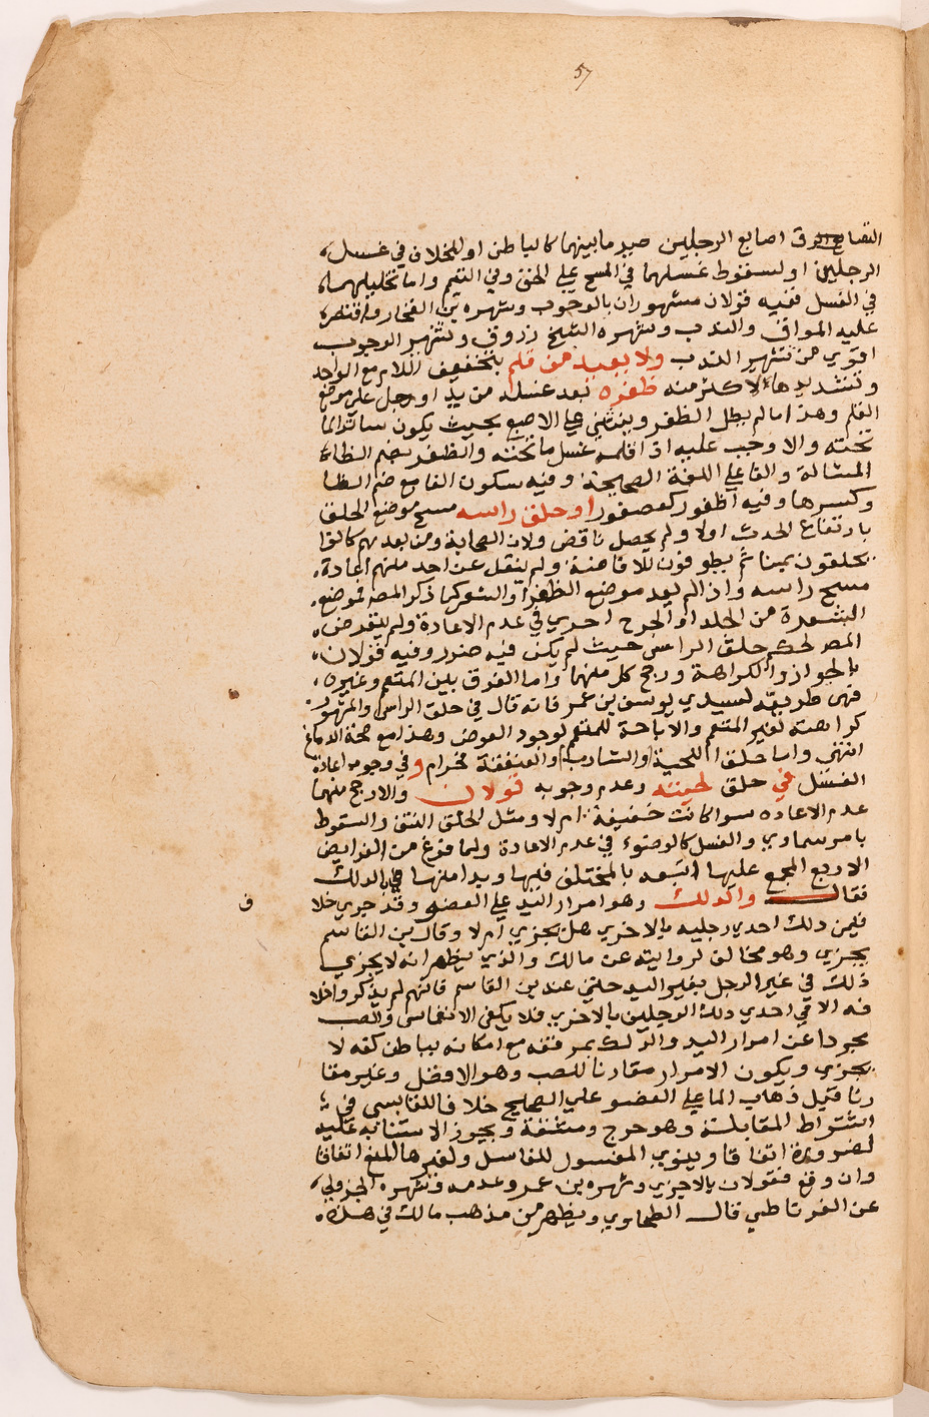 57
اصابع الرجلين صير ما بينهما كالباطن او للخلاف في غسل
الرجلين او لسقوط غسلهما في المسح علي الخف وفي التيمم واما تخليلهما
في الغسل ففيه قولان مشهوران بالوجوب وشهره بن الفخار واقتصر
عليه المواق والندب وشهره الشيخ زروق وتشهير الوجوب
اقوي من تشهير الندب ولا يعيد من قلم بتخفيف اللام مع الواحد
وتشديدها لاكثر منه ظفره بعد غسله من يد او رجل علي موضع
القلم وهذا ما لم يطل الظفر وينثني علي الاصبع بحيث يكون ساترا لما
تحته والا وجب عليه اذا قلمه غسل ما تحته والظفر بضم الظاء
المشالة والفا علي اللغة الصحيحة وفيه سكون الفا مع ضم الظا
وكسرها وفيه اظفور كعصفور او حلق راسه مسح موضع الحلق
بارتفاع الحدث اولا ولم يحصل ناقض ولان الصحابة ومن بعدهم كانوا
يحلقون بمنا ثم يطوفون للافاضة ولم ينقل عن احد منهم اعادة
مسح راسه واذا لم يعد موضع الظفر او الشعر كما ذكر المص فموضع
القشرة من الجلد او الجرح احري في عدم الاعادة ولم يتعرض
المص لحكم حلق الراس حيث لم يكن فيه ضرر وفيه قولان
بالجواز والكراهة ورجح كل منهما واما الفرق بين المتعمم وغيره
فهي طريقه لسيدي يوسف بن عمر فانه قال في حلق الراس والمشهور
كراهته لغير المتعمم والاباحة للمتعمم لوجود العوض وهذا مع صحة الدماغ
انتهي واما حلق اللحية والشارب والعنفقة فحرام وفي وجوب اعادة
الغسل في حلق لحيته وعدم وجوبه قولان والارجح منهما
عدم الاعاده سوا كانت خفيفة ام لا ومثل الحلق النتف والسقوط
بامر سماوي والغسل كالوضوء في عدم الاعادة ولما فرغ من الفرايض
الاربع المجمع عليها اتبعه بالمختلف فيها وبدا منها بالدلك
فقال والدلك وهو امرار اليد علي العضو وقد جري خلا
ف
فيمن دلك احدي رجليه بالاخري هل يجزي ام لا وقال بن القاسم
يجزي وهو مخالف لروايته عن مالك والذي يظهر انه لا يجزي
ذلك في غير الرجل بغير اليد حتي عند بن القاسم فانهم لم يذكروا خلا
فه الا في احدي دلك الرجلين بالاخري فلا يكفي الانغماس والصب
مجردا عن امرار اليد والدلك بمرفقه مع امكانه بباطن كفه لا
يجزي ويكون الامرار مقارنا للصب وهو الافضل وغير مقا
رنا قبل ذهاب الما علي العضو علي الصحيح خلافا للقابسي في
اشتراط المقابلة وهو حرج ومشقة ويجوز الاستنابه عليه
لضرورة اتفاقا وينوي المغسول للغاسل ولغيرها المنع اتفاقا
وان وقع فقولان بالاجزي وشهره بن عمر وعدمه وشهره الجزولي
عن الغرناطي قال الطحاوي ويظهر من مذهب مالك في هذه